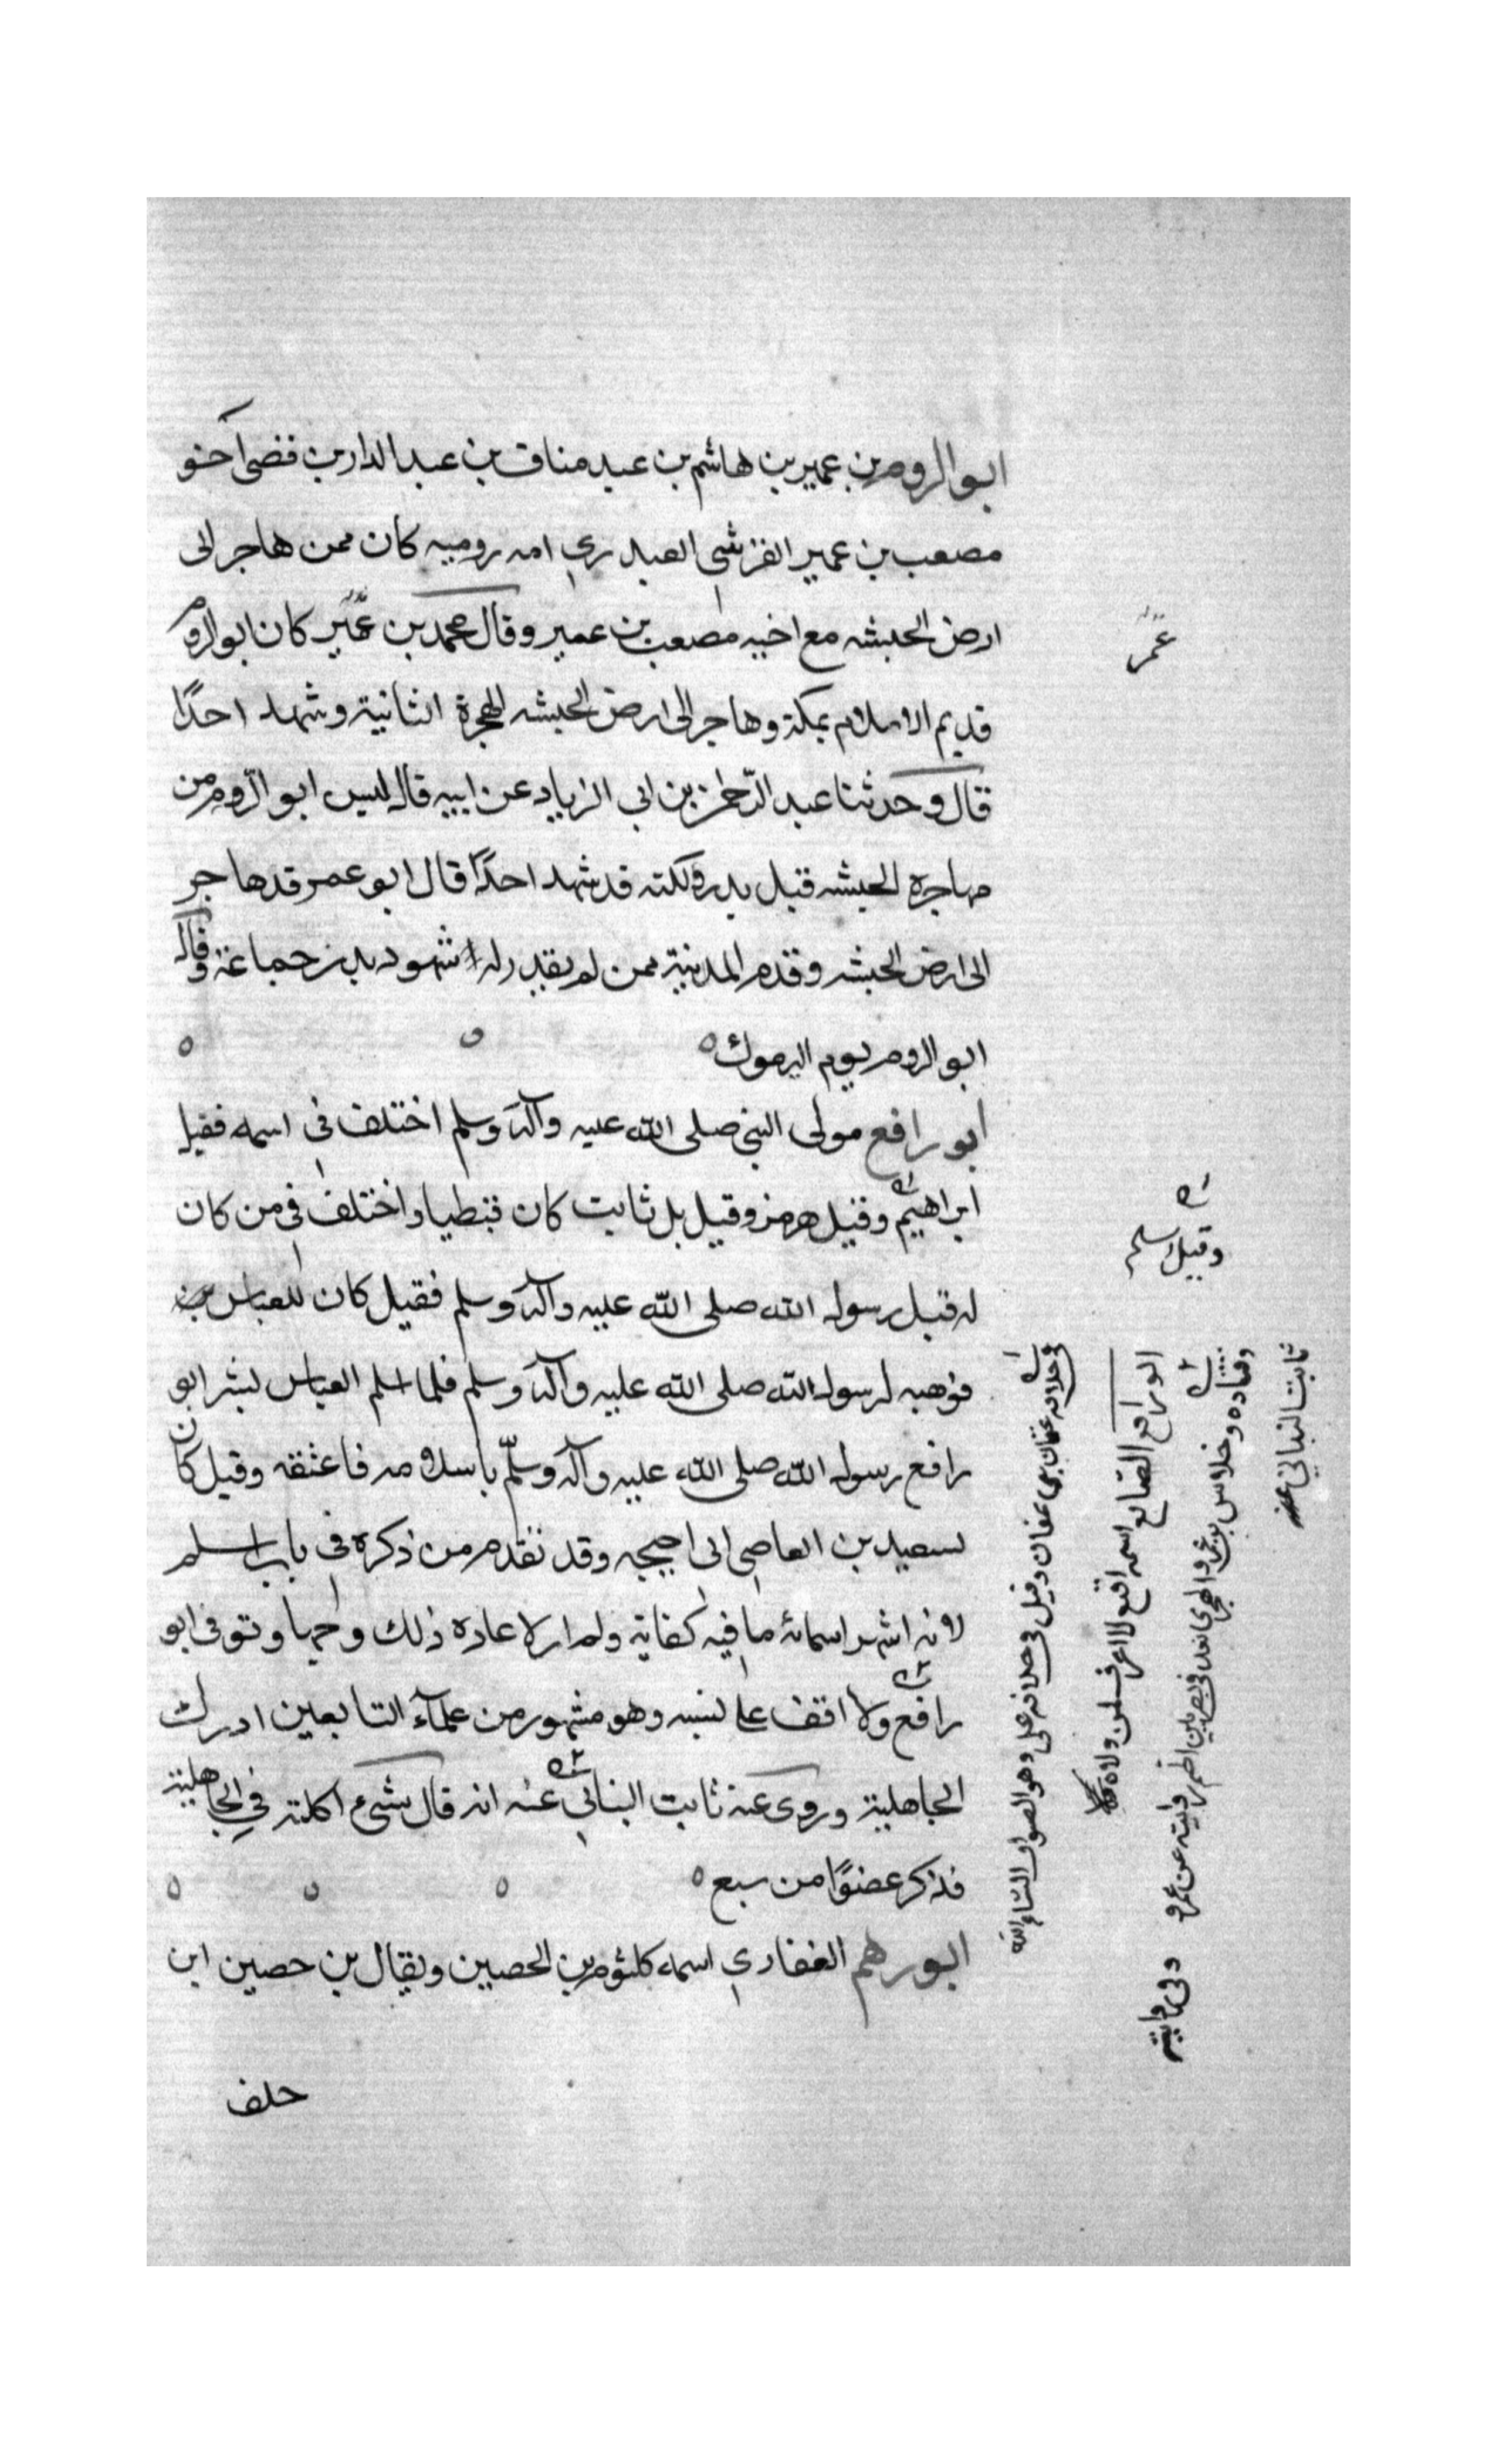 ابو الروم بن عمير بن هاشم بن عبد مناف بن عبد الدار بن قصى اخو
مصعب بن عمير القرشي العبدري امه روميه كان ممن هاجر الى
ارض الحبشه مع اخيه مصعب بن عمير وقال محمد بن عُمَير كان ابو الروم
عُمَر
قديم الاسلام بمكة وهاجر الى ارض الحبشه الهجرة الثانية وشهد احدًا
قال وحدثنا عبد الرّحمٰن بن ابي الزياد عن ابيه قال ليس ابو الرّوم من
مهاجرة الحبشه قبل بدر ولكنه قد شهد احدًا قال ابو عمر قد هاجر
الى ارض الحبشه وقدم المدينة ممن لم يقدر له شهود بدر جماعة وقال
ابو الروم يوم اليرموك
ابو رافع مولى النبي صلى الله عليه وآله وسلم اختلف في اسمه فقيل
ابراهيم وقيل هرمز وقيل بل ثابت كان قبطيا واختلف في من كان
وقيل اسلم
له قبل رسول الله صلى الله عليه وآله وسلم فقيل كان للعباس
فوهبه لرسول الله صلى الله عليه وآله وسلم فلما اسلم العباس بشر ابو
رافع رسول الله صلى الله عليه وآله وسلّم باسلامه فاعتقه وقيل كان
لسعيد بن العاصي ابى احيحه وقد تقدم من ذكره في باب اسلم
لانه اشهر اسمائه ما فيه كفاية ولم ار لاعاده ذلك وجها وتوفى ابو
رافع ولا اقف على نسبه وهو مشهور من علمآء التابعين ادرك
الجاهلية وروى عنه ثابت البناني عنه انه قال شيء اكلته في الجاهلية
فذكر عضوًا من سبع
ابو رهم الغفاري اسمه كلثوم بن الحصين ويقال بن حصين ابن
خلف
في خلافه عثمان بن عفان وقيل في خلافه على وهو الصواب ان شاء الله
ابو رافع الصّايغ اسمه نفيع لا اعرف لمن ولاه
وقتاده وخلاس بن عمرو الهجري يعد في البصريين اكثر روايته عن عمر و
ثابت البناني